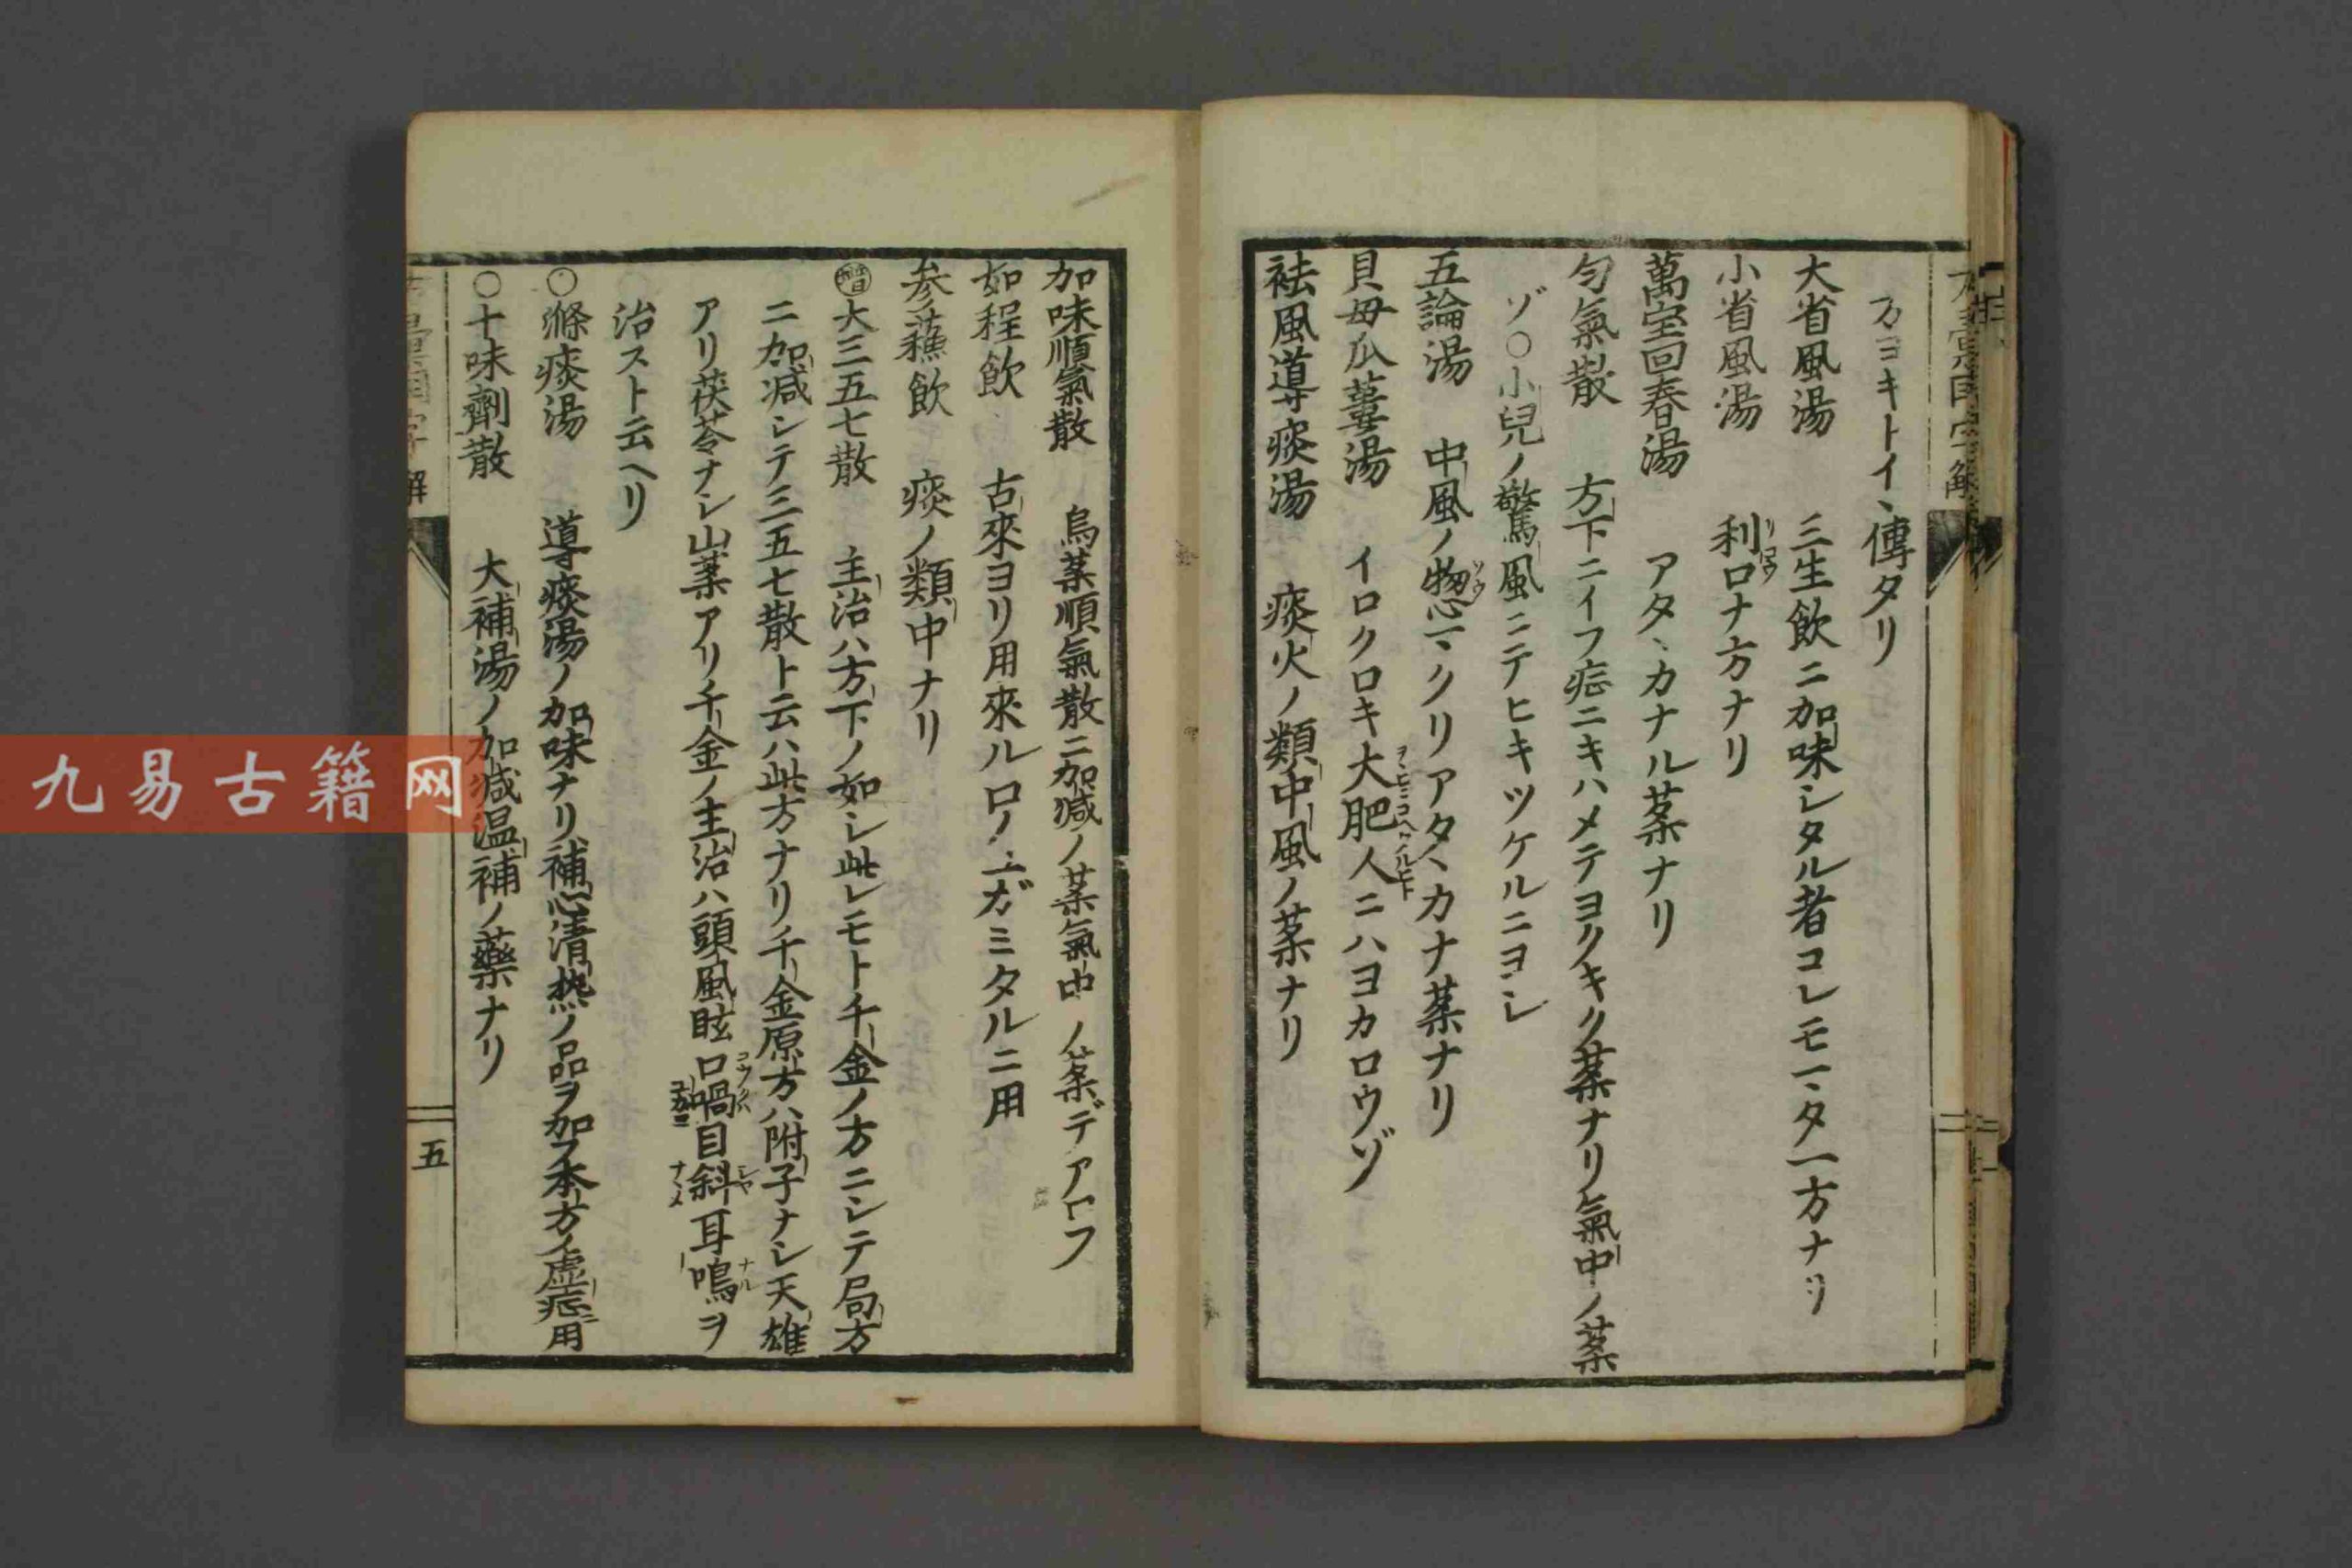 方ヨキトイヽ傳タリ
大省風湯　三生飲ニ加味シタル者コレモマヽタ一方ナリ
小省風湯　利口ナ方ナリ
萬宝回春湯　アタヽカナル薬ナリ
匀氣散　方下ニイフ症ニキハメテヨクキク薬ナリ氣中ノ薬
ゾ〇小兒ノ驚風ニテヒキツケルニヨシ
五論湯　中風ノ惣マクリアタヽカナ薬ナリ
貝母瓜蔞湯　イロクロキ大肥人ニハヨカロウゾ
祛風導痰湯　痰火ノ類中風ノ薬ナリ
加味順氣散　烏薬順氣散ニ加減ノ薬氣中ノ薬デアロフ
如程飲　古來ヨリ用來ル口ノユガミタルニ用
参蘓飲　痰ノ類中ナリ
大三五七散　主治ハ方下ノ如シ此レモト千金ノ方ニシテ局方
ニ加減シテ三五七散ト云ハ此方ナリ千金原方ハ附子ナシ天雄
アリ茯苓ナシ山薬アリ千金ノ主治ハ頭風眩口喎目斜耳鳴ヲ
治スト云ヘリ
〇滌痰湯　導痰湯ノ加味ナリ補心清熱ノ品ヲ加フ本方ノ虚症用
〇十味剉散　大補湯ノ加减温補ノ藥ナリ
五
九易古籍网